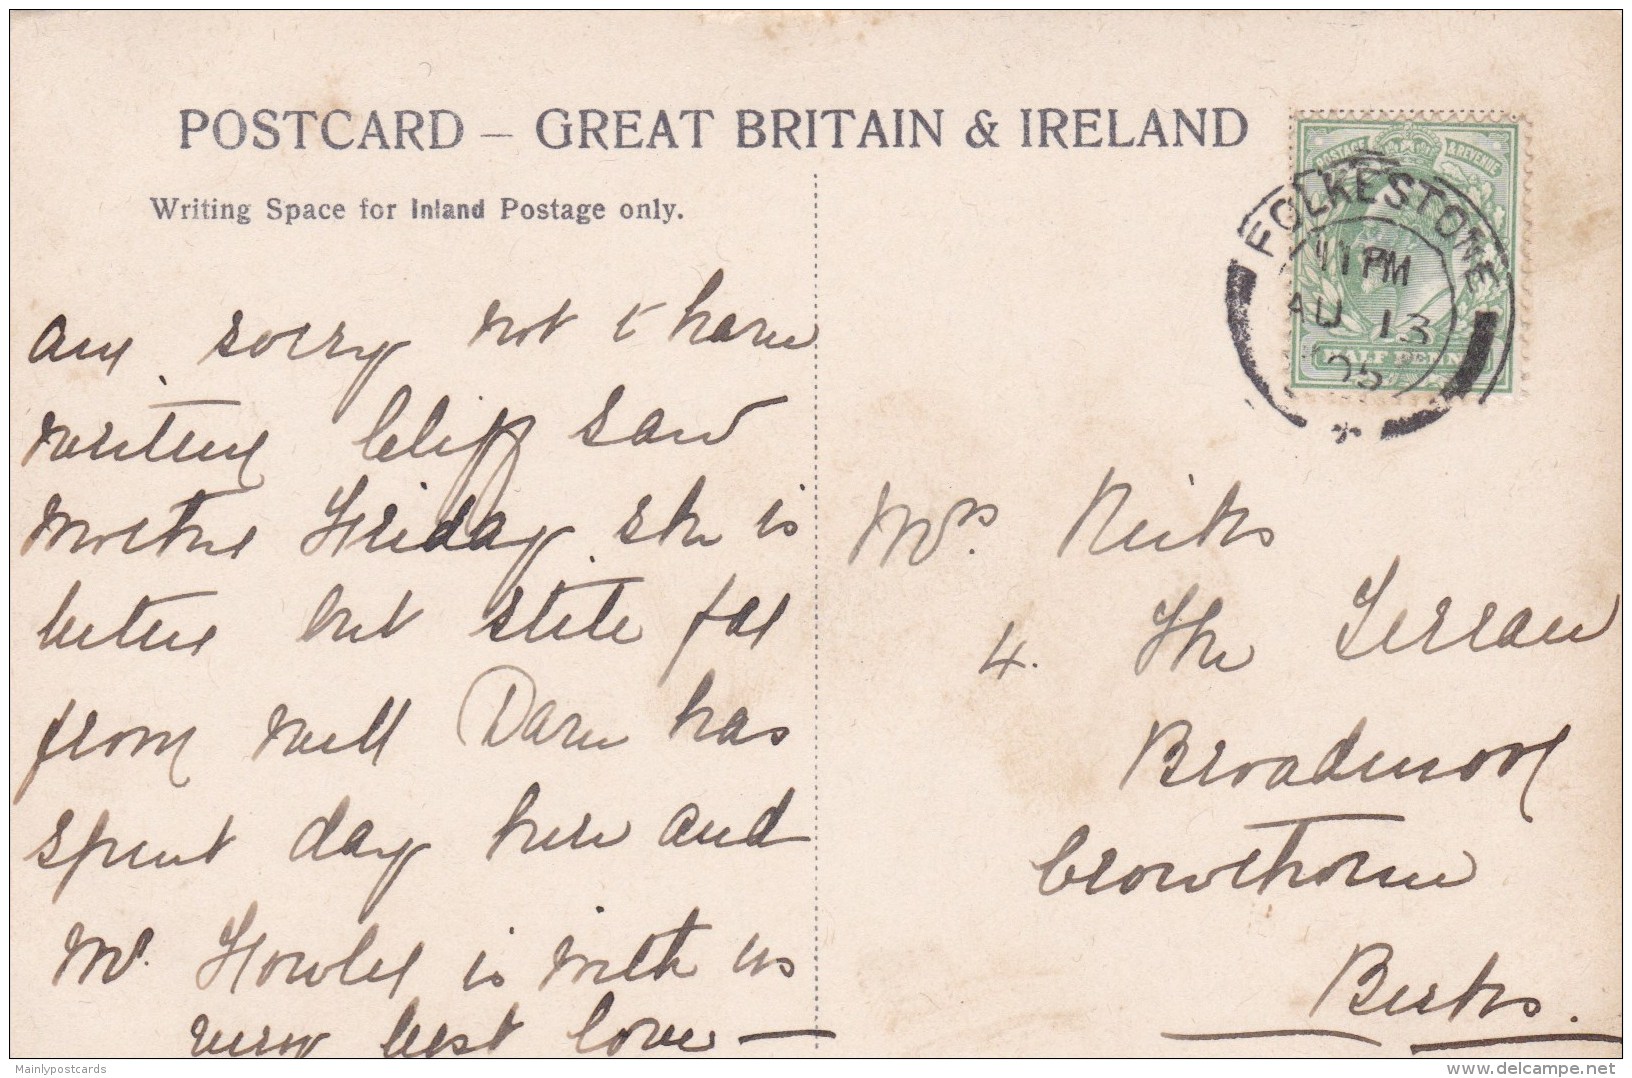 POSTCARD – GREAT BRITAIN & IRELAND
Writing Space for Inland Postage only.
am sorry not to have
written Cliff saw
mother Friday she is
better but still far
from well Dave has
spent day here and
Mr. Fowler is with us
very best love —
POSTAGE & REVENUE
HALF PENNY
FOLKESTONE
11 PM
AU 13
05
Mrs.
4. The Terrace
Broadmoor
Crowthorne
Berks.
Mainlypostcards
delcampe.net